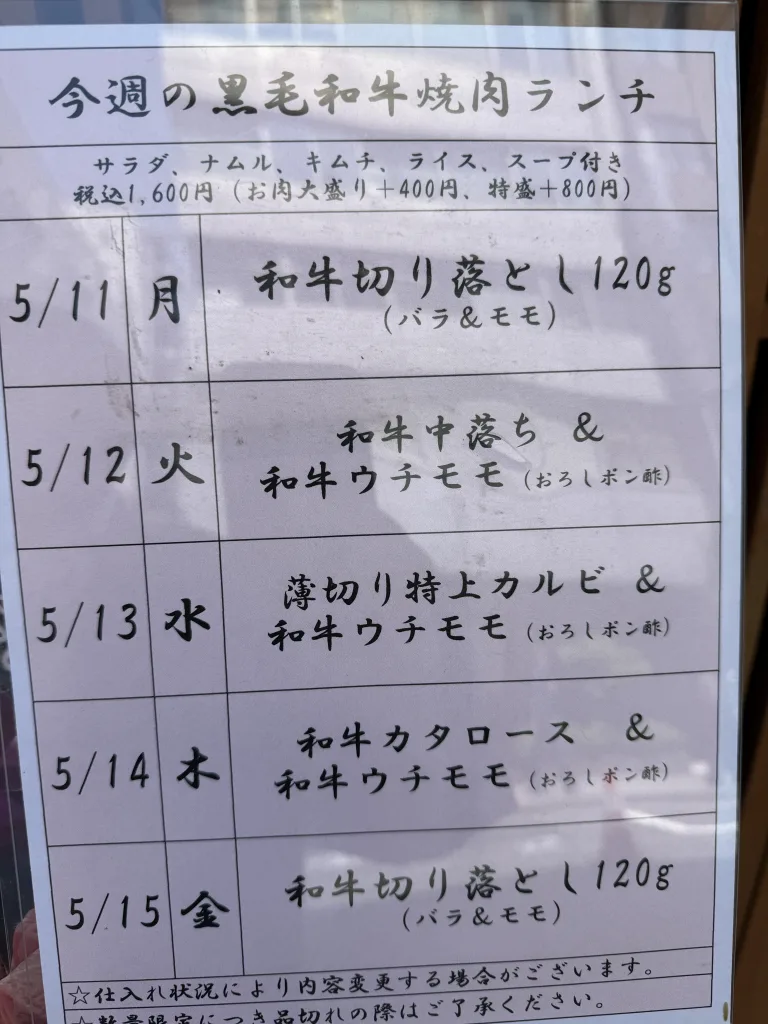 今週の黒毛和牛焼肉ランチ
サラダ、ナムル、キムチ、ライス、スープ付き
税込1,600円（お肉大盛り＋400円、特盛＋800円）
5/11 月 和牛切り落とし120g
（バラ＆モモ）
5/12 火 和牛中落ち ＆
和牛ウチモモ（おろしポン酢）
5/13 水 薄切り特上カルビ ＆
和牛ウチモモ（おろしポン酢）
5/14 木 和牛カタロース ＆
和牛ウチモモ（おろしポン酢）
5/15 金 和牛切り落とし120g
（バラ＆モモ）
☆仕入れ状況により内容変更する場合がございます。
☆数量限定につき品切れの際はご了承ください。